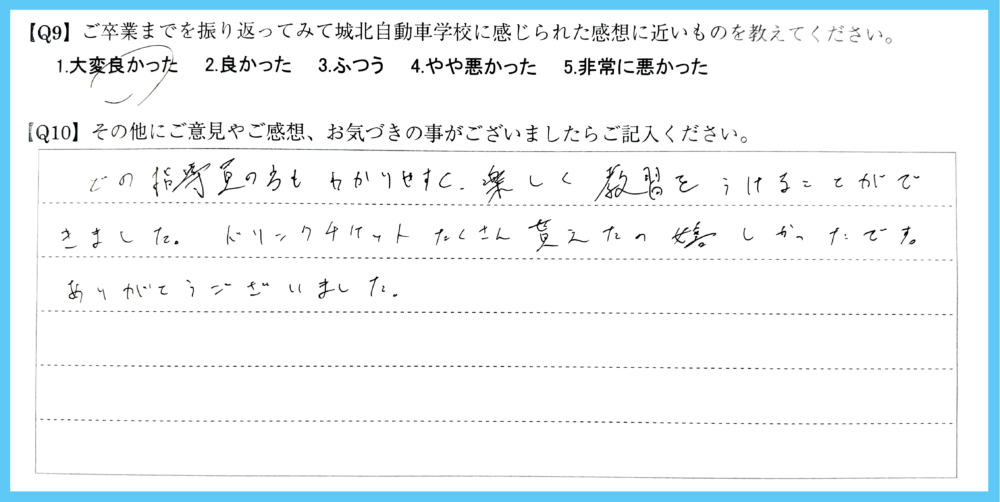 【Q9】ご卒業までを振り返ってみて城北自動車学校に感じられた感想に近いものを教えてください。
1.大変良かった 2.良かった 3.ふつう 4.やや悪かった 5.非常に悪かった
【Q10】その他にご意見やご感想、お気づきの事がございましたらご記入ください。
どの指導員の方もわかりやすく、楽しく教習をうけることがで
きました。ドリンクチケットたくさん貰えたの嬉しかったです。
ありがとうございました。